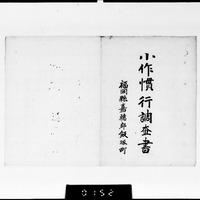 小作慣行調査書
福岡縣嘉穂郡飯塚町
0152